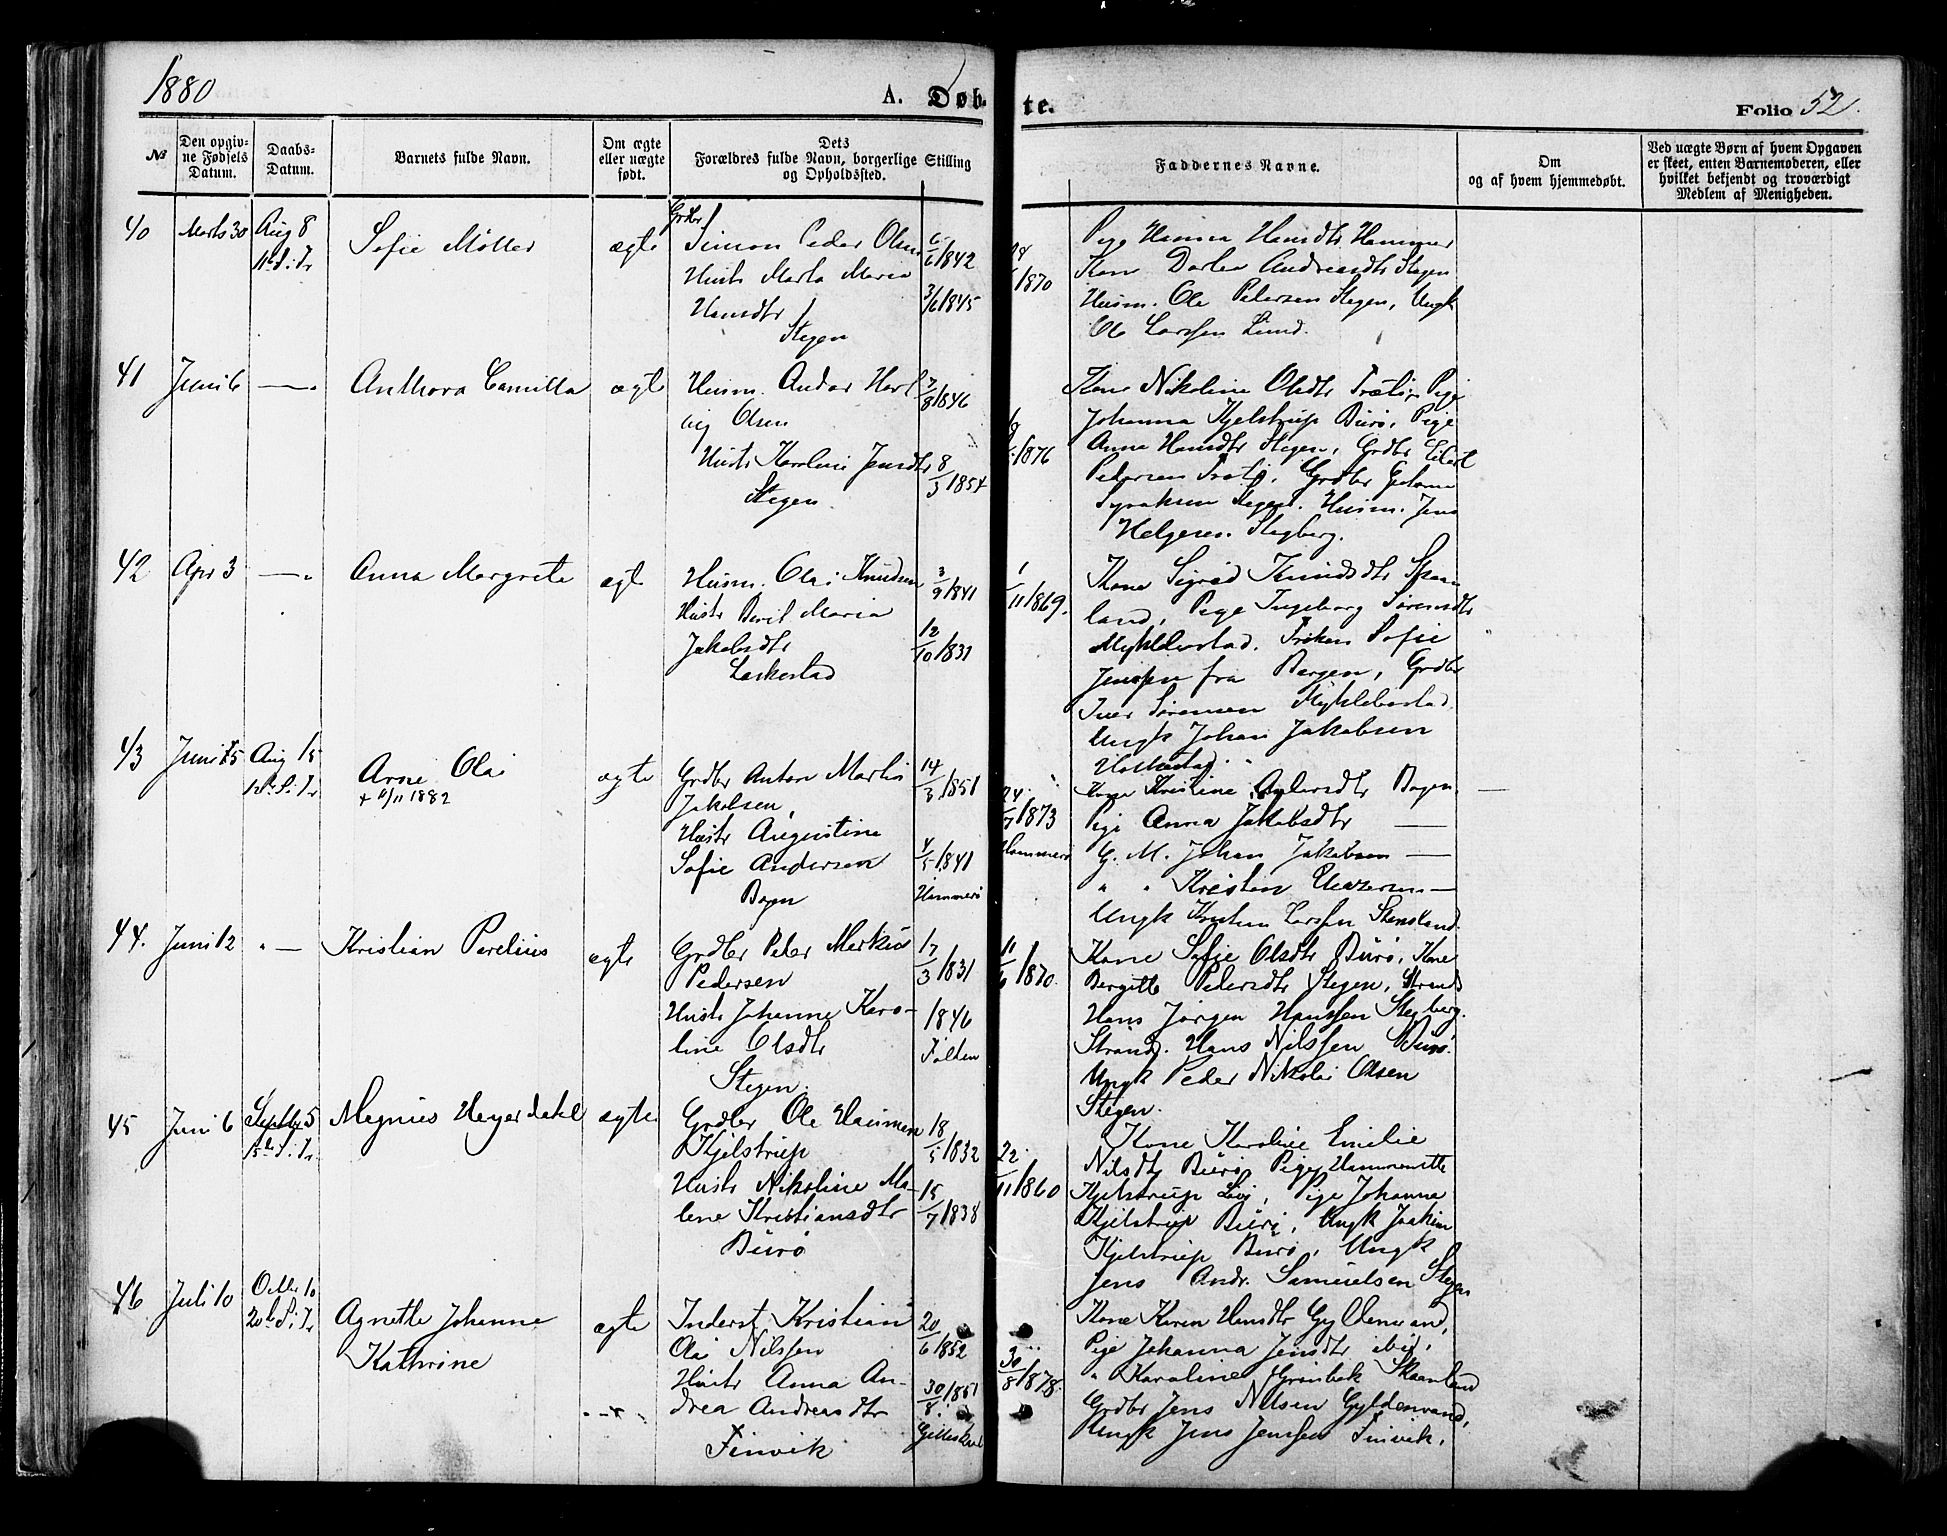 1880
A. Døb-
te.
Folio 52.
No
Den opgiv-
ne Fødsels
Datum.
Daabs-
Datum.
Barnets fulde Navn.
Om ægte
eller uægte
født.
Dets
Forældres fulde Navn, borgerlige Stilling
og Opholdssted.
Faddernes Navne.
Om
og af hvem hjemmedøbt.
Ved uægte Børn af hvem Opgaven
er skeet, enten Barnemoderen, eller
hvilket bekjendt og troværdigt
Medlem af Menigheden.
40
Marts 30
Aug 8
Sofie Møller
ægte
Grdbr
Simon Peder Olsen
Hustr Marta Maria
Hansdtr
Stegen
6/6 1842
3/6 1845
1870
Pige Hanna Hansdtr Hammer
Kone Dortea Andreasdtr Stegen
Husm. Ole Pedersen Stegen, Ungk
Ole Larssen Lund.
41
Juni 6
Anthora Camilla
ægte
Husm. Andor Hart
vig Olsen
Hustr Karoline Jensdtr
Stegen
7/8 1846
8/3 1854
1876
Kone Nikoline Olsdtr Pige
Johanna Kjelstrup Burø, Pige
Anna Hansdtr Stegen, Grdbr Eilert
Pedersen Grdbr
Stegen. Husm. Jens
Helgesen Stegberg.
42
Apr 3
Anna Margrete
ægte
Husm. Olai Knudsen
Hustr Berit Maria
Jakobsdtr
Laskestad
3/9 1841
12/10 1831
1/11 1869.
Kone Sigrid Knudsdtr Skaan
land, Pige Ingeborg Sørensdtr
Myklebostad. Frøken Sofie
Jenssen fra Bergen, Grdbr
Iver Sørensen Myklebostad
Ungk Johan Jakobsen
43
Juni 15
Aug 15
Arne Olai
+ 11/11 1882
ægte
Grdbr Anton Martin
Jakobsen,
Hustr Augustine
Sofie Andersen
Bogen
14/3 1851
4/5 1841
Hammerø
24/7 1873
Hammerø
Kone Kristine Bogen
Pige Anna Jakobsdtr —
G. M. Johan Jakobsen —
" " Kristen —
Ungk Kristen Larssen Skensland.
44.
Juni 12
" —
Kristian Perelius
ægte
Grdbr Peder Markus
Pedersen
Hustr Johanne Karo-
line Olsdtr
Stegen.
17/3 1831
1846
Folden
11/6 1870.
Kone Sofie Olsdtr Burø, Kone
Bergitte Pedersdtr Stegen, Strands
Hans Jørgen Hanssen Stegberg.
Strands. Hans Nilssen Burø.
Ungk Peder Nikolai Olsen
Stegen.
45
Juni 6
Septbr 5
Magnus Heyerdahl
ægte
Grdbr Ole Hammer
Kjelstrup
Hustr Nikoline Ma-
lene Kristiansdtr
Burø
18/5 1832
15/7 1838
22/11 1860
Kone Karoline Emilie
Nilsdtr Burø, Pige
Kjelstrup Pige Johanna
Kjelstrup Burø, Ungk Joakim
Kjelstrup Burø, Ungk
Jens Andr. Samuelsen Stegen
46
Juli 10
Octbr 10
Agnethe Johanne
Kathrine
ægte
Inderst Kristian
Olai Nilssen
Hustr Anna An-
drea Andreasdtr
Finvik
20/6 1852
30/8 1851
Gilleskaal
30/8 1878.
Kone Karen Hansdtr Gyldenvand,
Pige Johanna Jensdtr ibid,
" Karoline Grønbek Skaanland
Grdbr Jens Nilsen Gyldenvand,
Ungk Jens Jenssen Finvik,